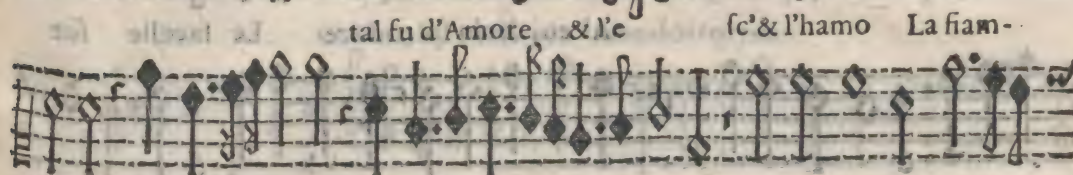 tal fu d'Amore & l'e ſc'& l'hamo La fiam-